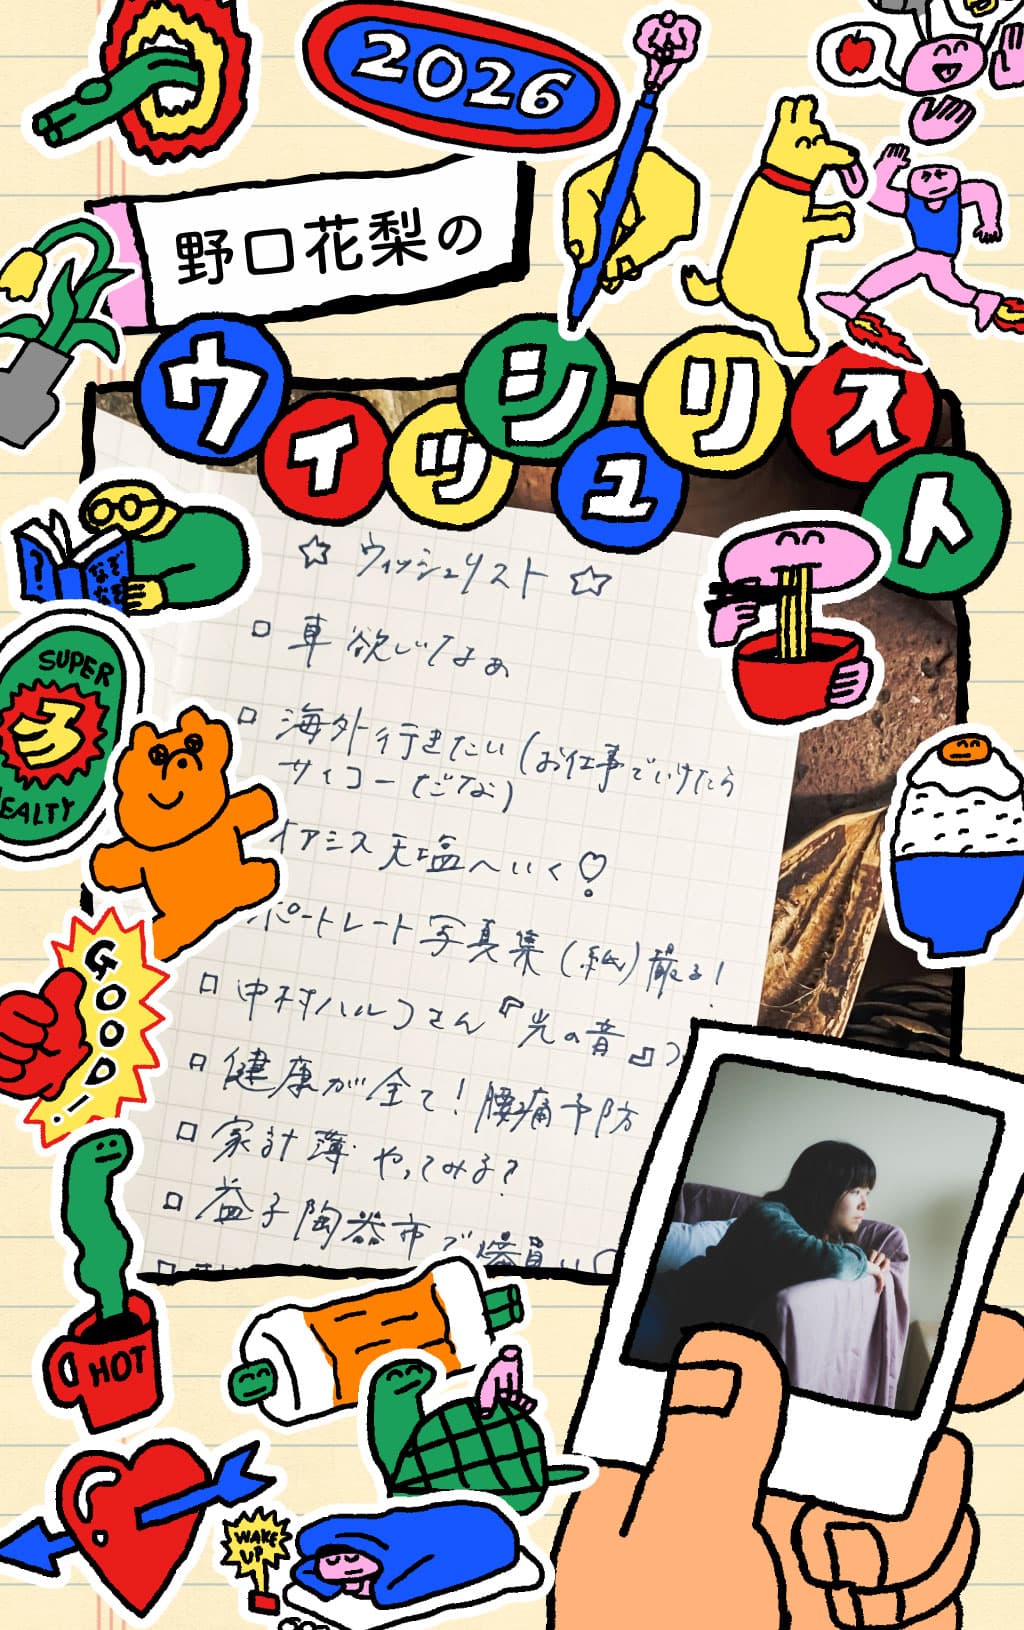 2026
野口花梨の
ウィッシュリスト
☆ ウィッシュリスト ☆
□ 車欲しいなぁ
□ 海外行きたい(お仕事でいけたら
サイコーだな)
イアシス天塩へいく♡
ポートレート写真集(紙)撮る!
□ 中村ハルコさん『光の音』
□ 健康が全て! 腰痛予防
□ 家計簿やってみる?
□ 益子陶器市で爆買い
?
なぞなぞ
SUPER
EALTY
GOOD!
HOT
WAKE
UP